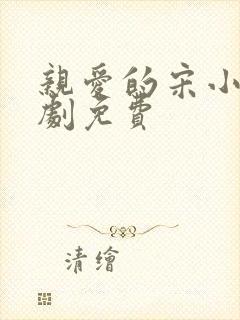 親愛的宋小
劇免費
清繪